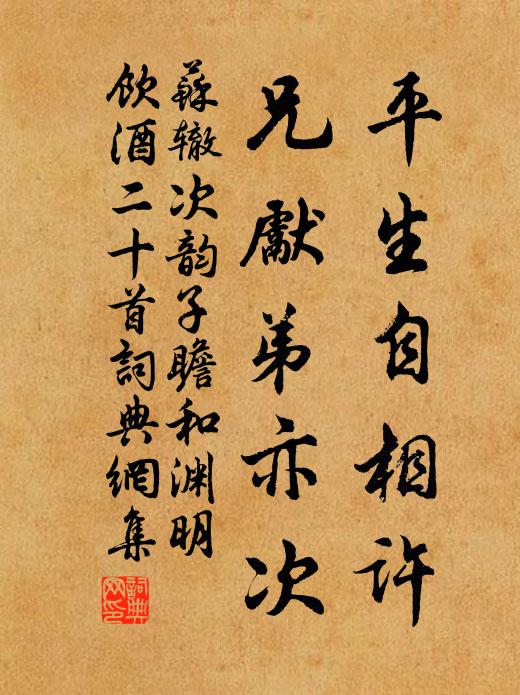 平生自相許
兄獻弟亦次
蘇辙次韵子瞻和渊明
飲酒二十首詞典網集
詞典网印